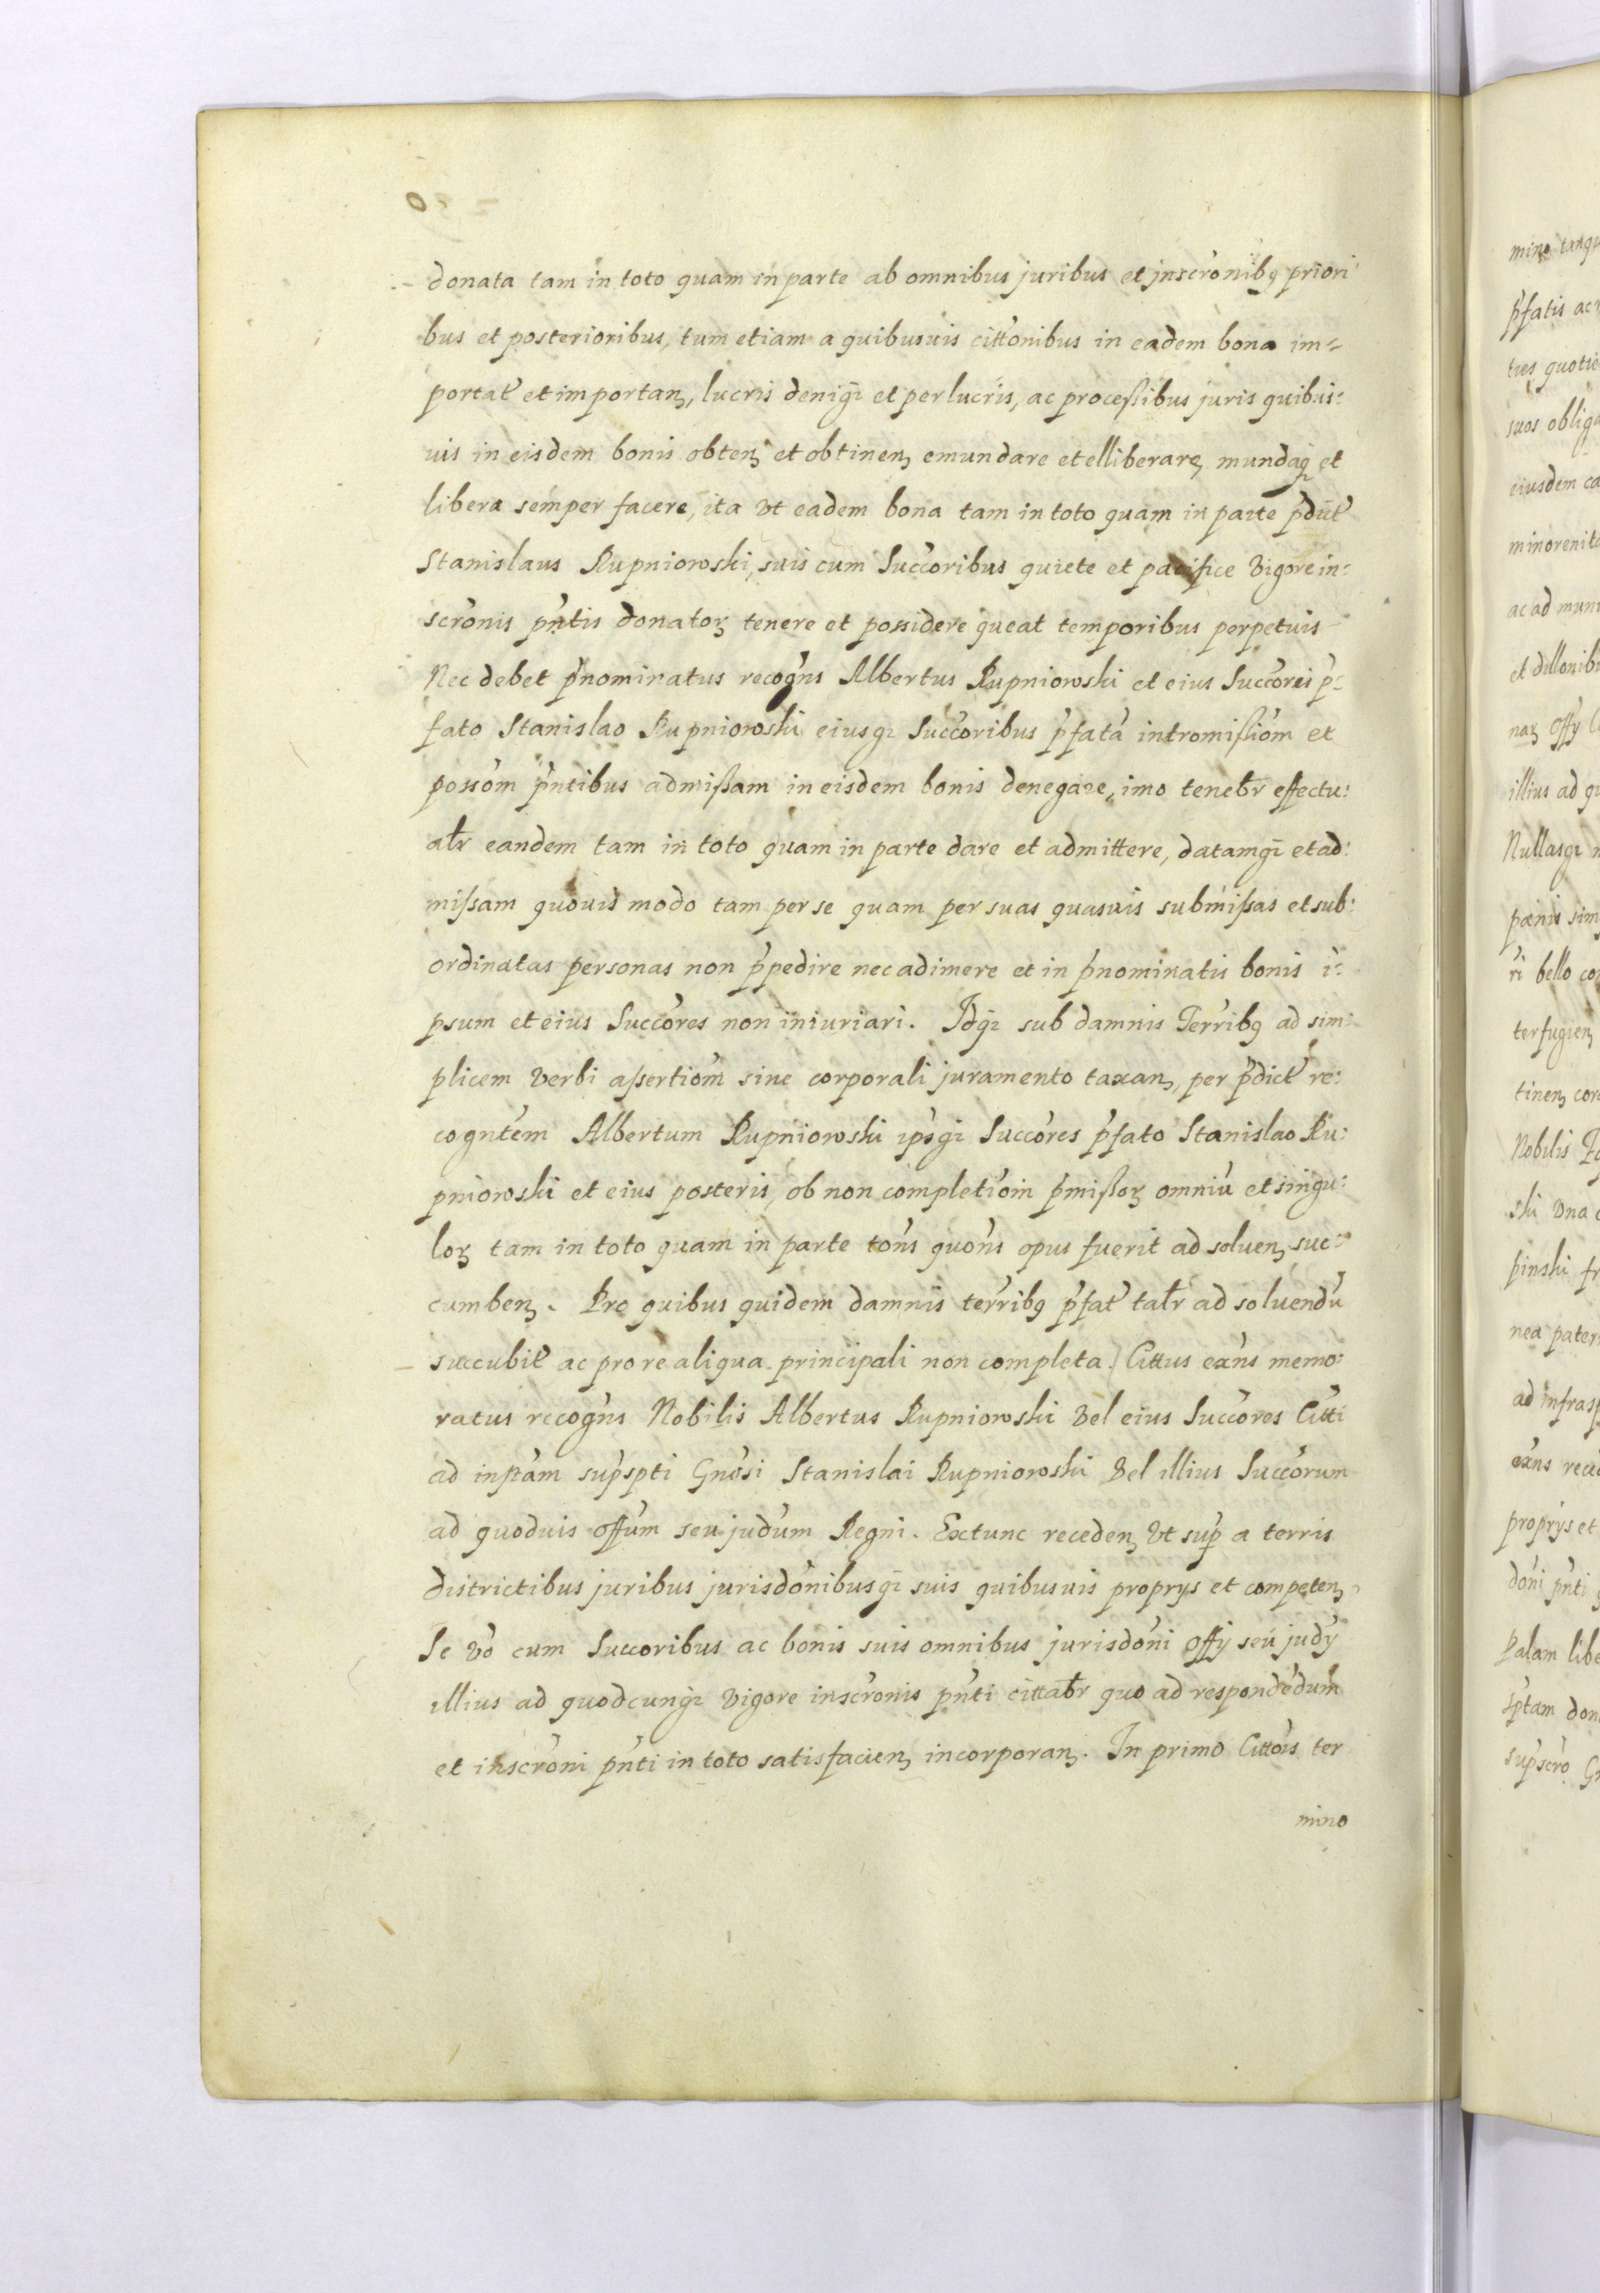 donata tam in toto quam in parte ab omnibus juribus et jnscrőnibꝫ priori
bus et posterioribus, tum etiam a quibusuis cittőnibus in eadem bona im=
portať et importanꝫ, lucris deniqꝫ et perlucris, ac processibus juris quibus:
uis in eisdem bonis obtenꝫ et obtinenꝫ emundare et elliberare, mundaqꝫ et
libera semper facere, ita vt eadem bona tam in toto quam in parte p̃duť
Stanislaus Rupniowski, suis cum Succőribus quiete et pacifice vigore in:
scrőnis pñtis donatoꝝ tenere et possidere queat temporibus perpetuis
Nec debet p̃nominatus recogñs Albertus Rupniowski et eius Succőres p̃=
fato Stanislao Rupniowski eiusqꝫ Succőribus p̃fatã intromissiőm et
possőm pñtibus admissam in eisdem bonis denegare, imo tenebr̃ effectu:
alr̃ eandem tam in toto quam in parte dare et admittere, datamqꝫ et ad:
missam quouis modo tam per se quam per suas quasuis submissas et sub:
ordinatas personas non p̃pedire nec adimere et in p̃nominatis bonis i=
psum et eius Succőres non iniuriari. Idqꝫ sub damnis Terr̃ibꝫ ad sim=
plicem verbi assertiőm sine corporali juramento taxanꝫ, per p̃dicť re:
cogñtem Albertum Rupniowski ipsqꝫ Succőres p̃fato Stanislao Ru:
pniowski et eius posteris, ob non completiőm p̃missoꝝ omniũ et singu:
loꝝ tam in toto quam in parte tőns quőns opus fuerit ad soluenꝫ suc:
cumbenꝫ. Pro quibus quidem damnis terr̃ibꝫ p̃fať talr̃ ad soluendũ
succubiť ac pro re aliqua principali non completa. Cittus exñs memo:
ratus recogñs Nobilis Albertus Rupniowski vel eius Succőres Citti
ad inp̃tam supspti Gnősi Stanislai Rupniowski vel illius Succőrum
ad quoduis offũm seu judũm Regni. Extunc recedenꝫ vt sup̃ a terris
districtibus juribus jurisdőnibusqꝫ suis quibusuis proprys et competenꝫ
Se vő cum Succoribus ac bonis suis omnibus jurisdőni offy seu judy
illius ad quodcunqꝫ vigore inscrőnis pñti cittabr̃ quo ad respondẽdum
et inscrőni pñti in toto satisfacienꝫ incorporanꝫ. In primo Cittőis ter
mino